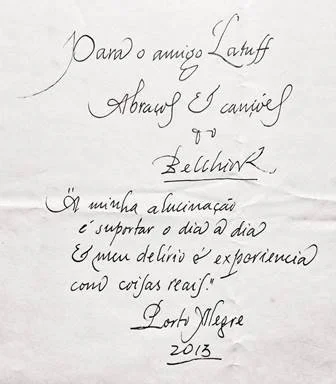 Para o amigo Latuff
Abraços & canções
do
Belchior,
"A minha alucinação
é suportar o dia a dia
& meu delírio é experiencia
com coisas reais."
Porto Alegre
2013